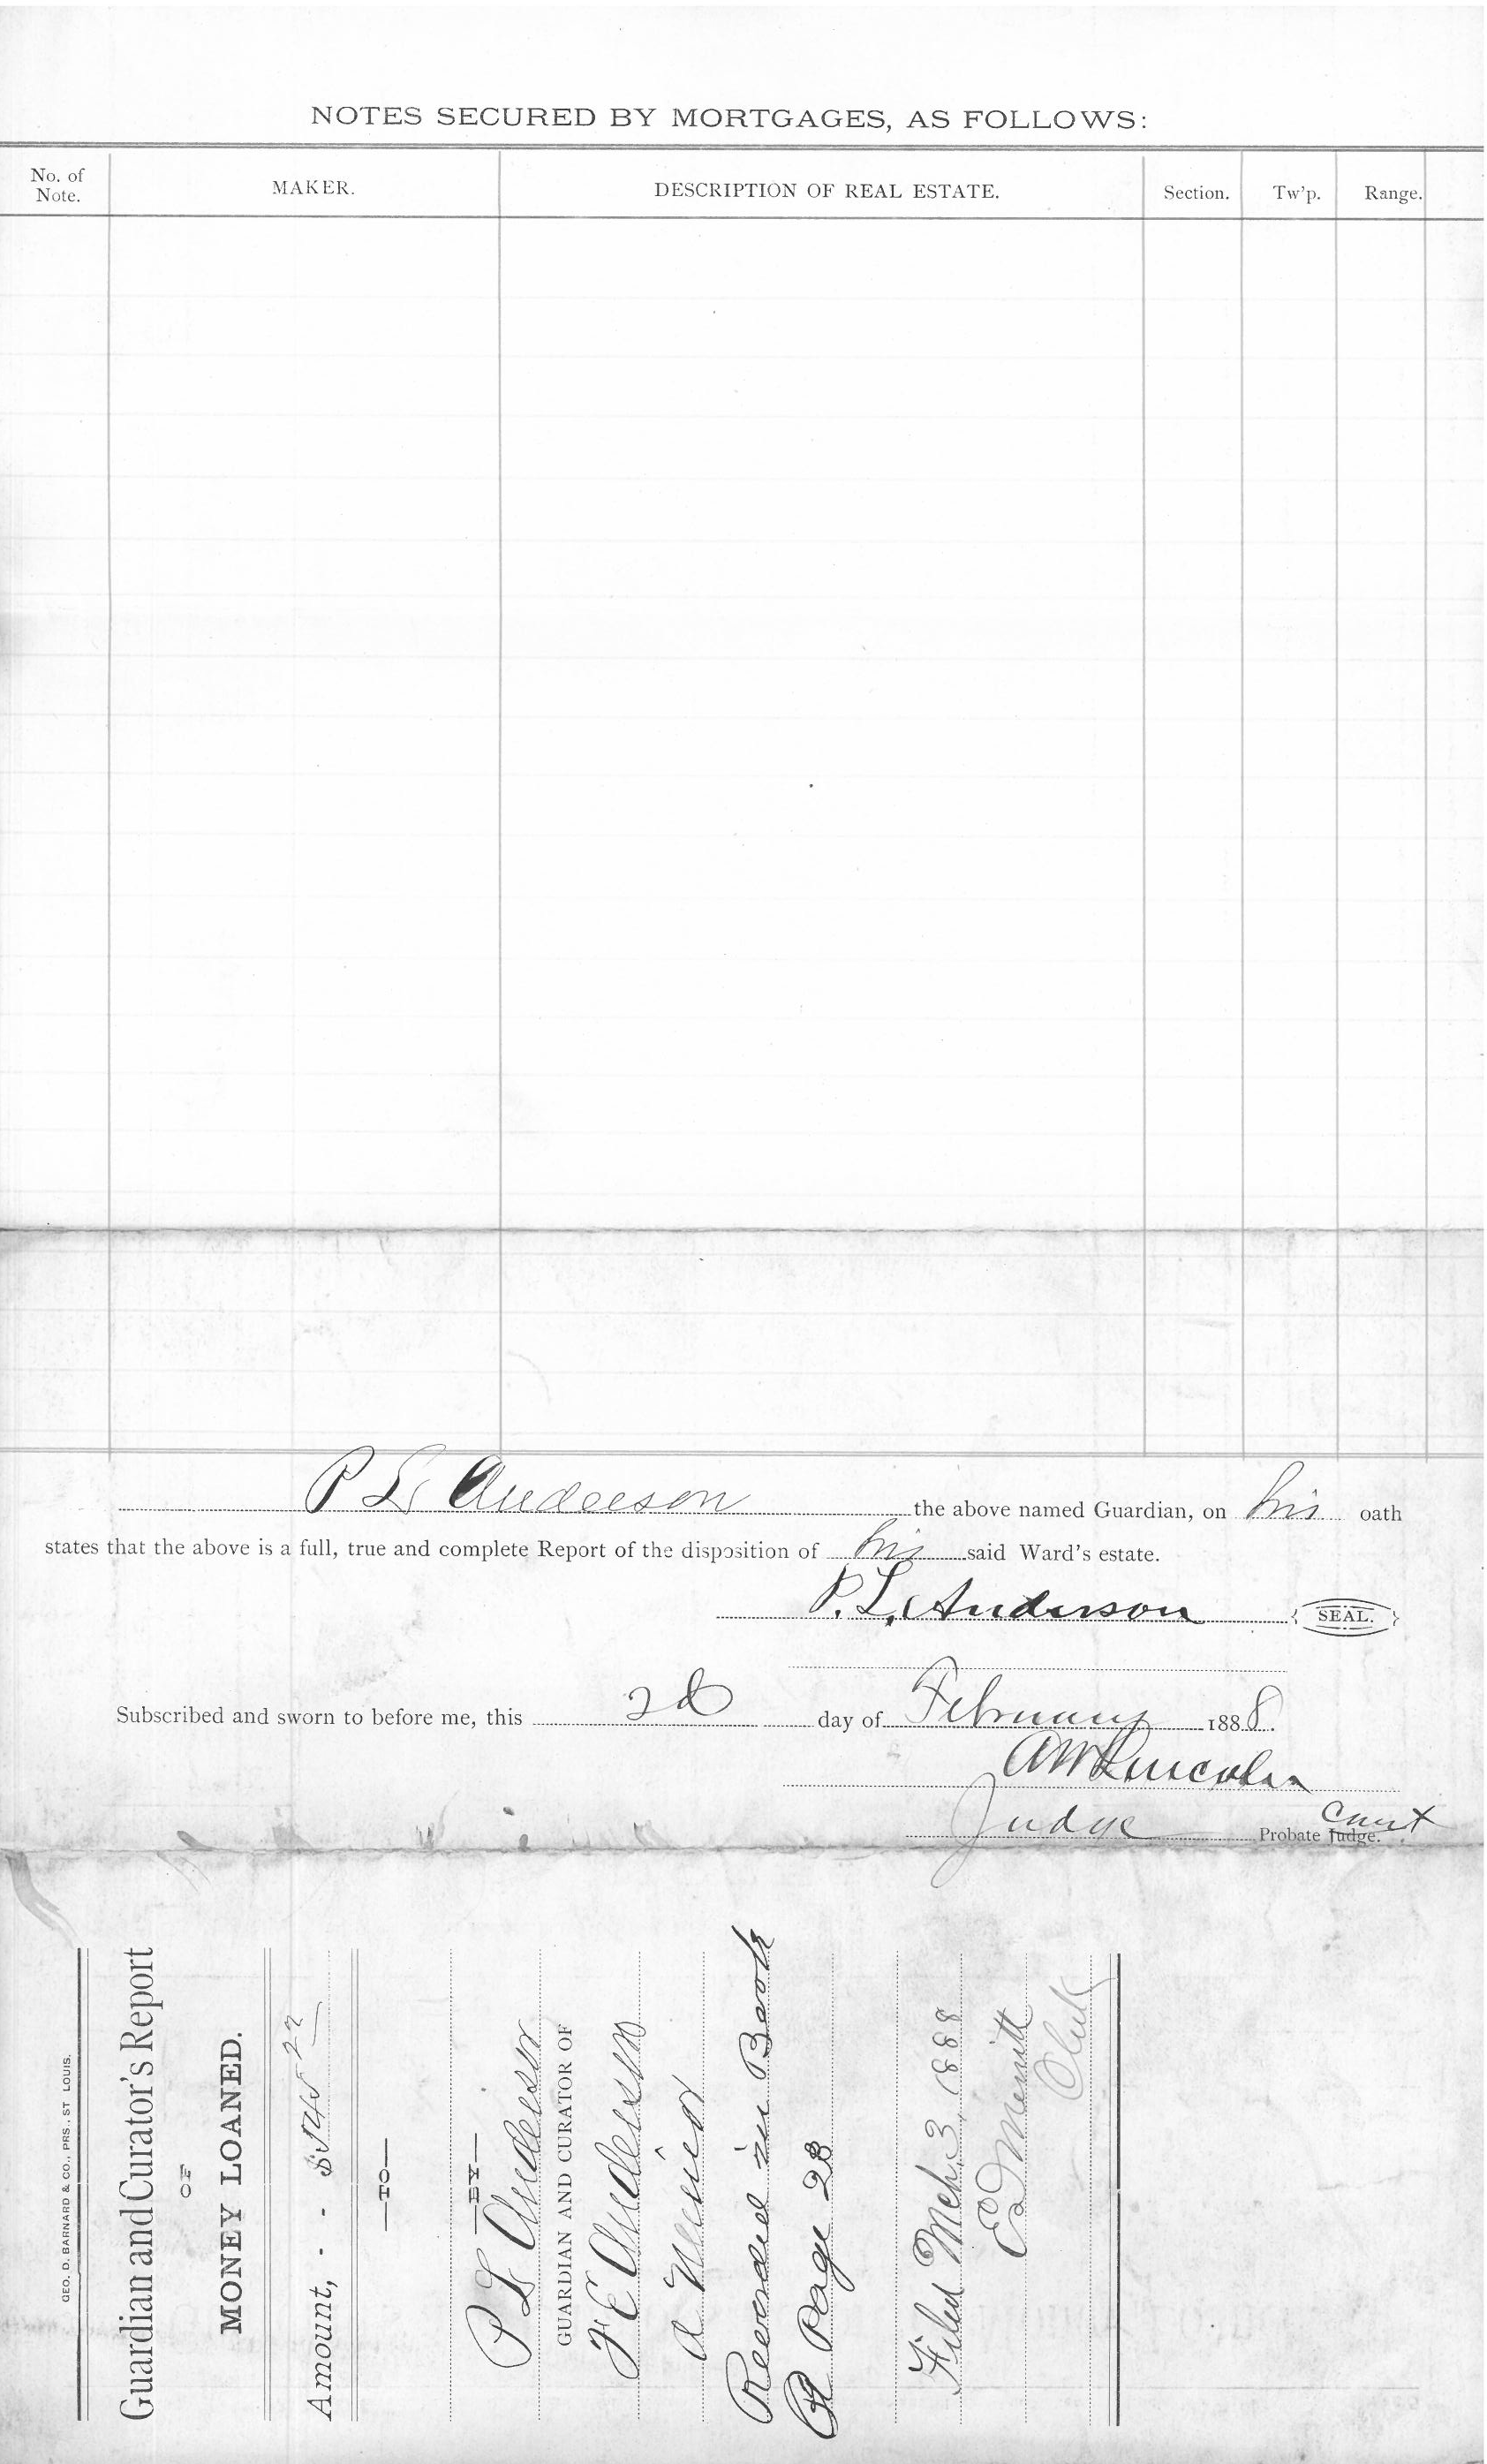 NOTES SECURED BY MORTGAGES, AS FOLLOWS:
No. of Note. MAKER. DESCRIPTION OF REAL ESTATE. Section. Tw'p. Range.
P L Anderson the above named Guardian, on his oath
states that the above is a full, true and complete Report of the disposition of his said Ward's estate.
P. L. Anderson {SEAL.}
Subscribed and sworn to before me, this 2d day of February 1888.
A W Lincoln
Judge Probate Judge. Court
GEO. D. BARNARD & CO., PRS., ST LOUIS.
Guardian and Curator's Report
OF
MONEY LOANED.
Amount, - -
—TO—
—BY—
P L Anderson
GUARDIAN AND CURATOR OF
F E Anderson
a Minor
Recorded in Book
Page 28
Filed Mch. 3, 1888
E D Merritt
Clerk